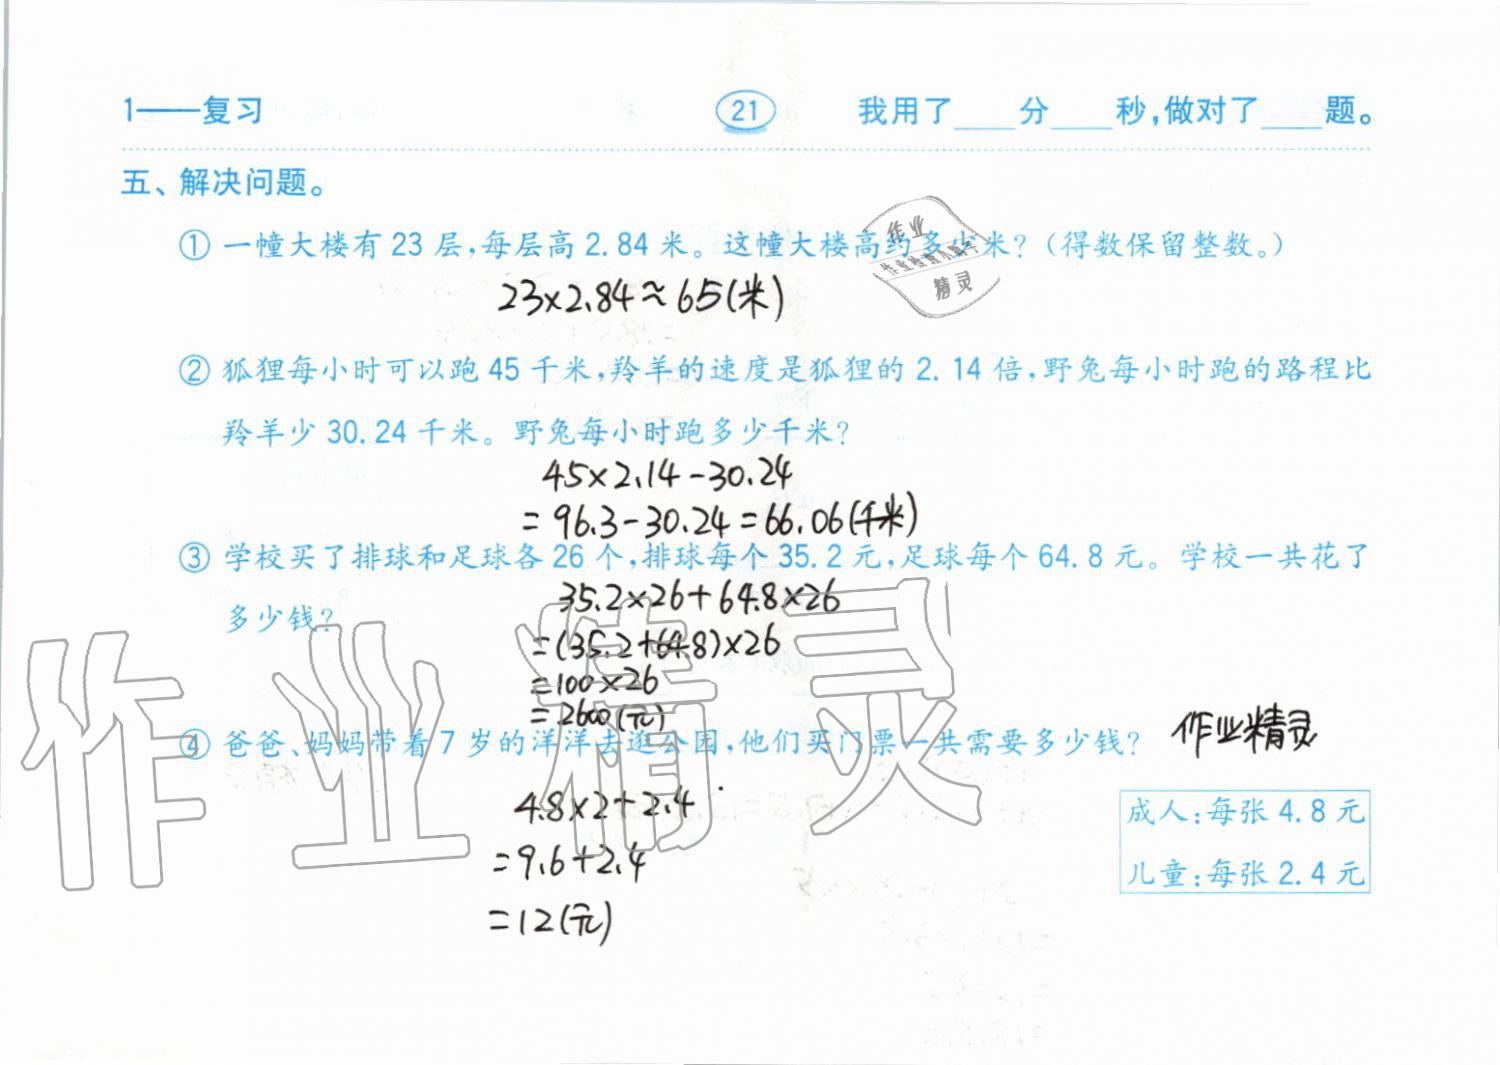 1——复习 21 我用了____分____秒,做对了____题。
五、解决问题。
① 一幢大楼有 23 层,每层高 2.84 米。这幢大楼高约多少米?(得数保留整数。)
作业
作业检查小助手
精灵
23×2.84≈65(米)
② 狐狸每小时可以跑 45 千米,羚羊的速度是狐狸的 2.14 倍,野兔每小时跑的路程比
羚羊少 30.24 千米。野兔每小时跑多少千米?
45×2.14-30.24
=96.3-30.24=66.06(千米)
③ 学校买了排球和足球各 26 个,排球每个 35.2 元,足球每个 64.8 元。学校一共花了
多少钱?
35.2×26+64.8×26
=(35.2+64.8)×26
=100×26
=2600(元)
作业精灵
④ 爸爸、妈妈带着 7 岁的洋洋去逛公园,他们买门票一共需要多少钱?
作业精灵
4.8×2+2.4
=9.6+2.4
=12(元)
成人:每张 4.8 元
儿童:每张 2.4 元